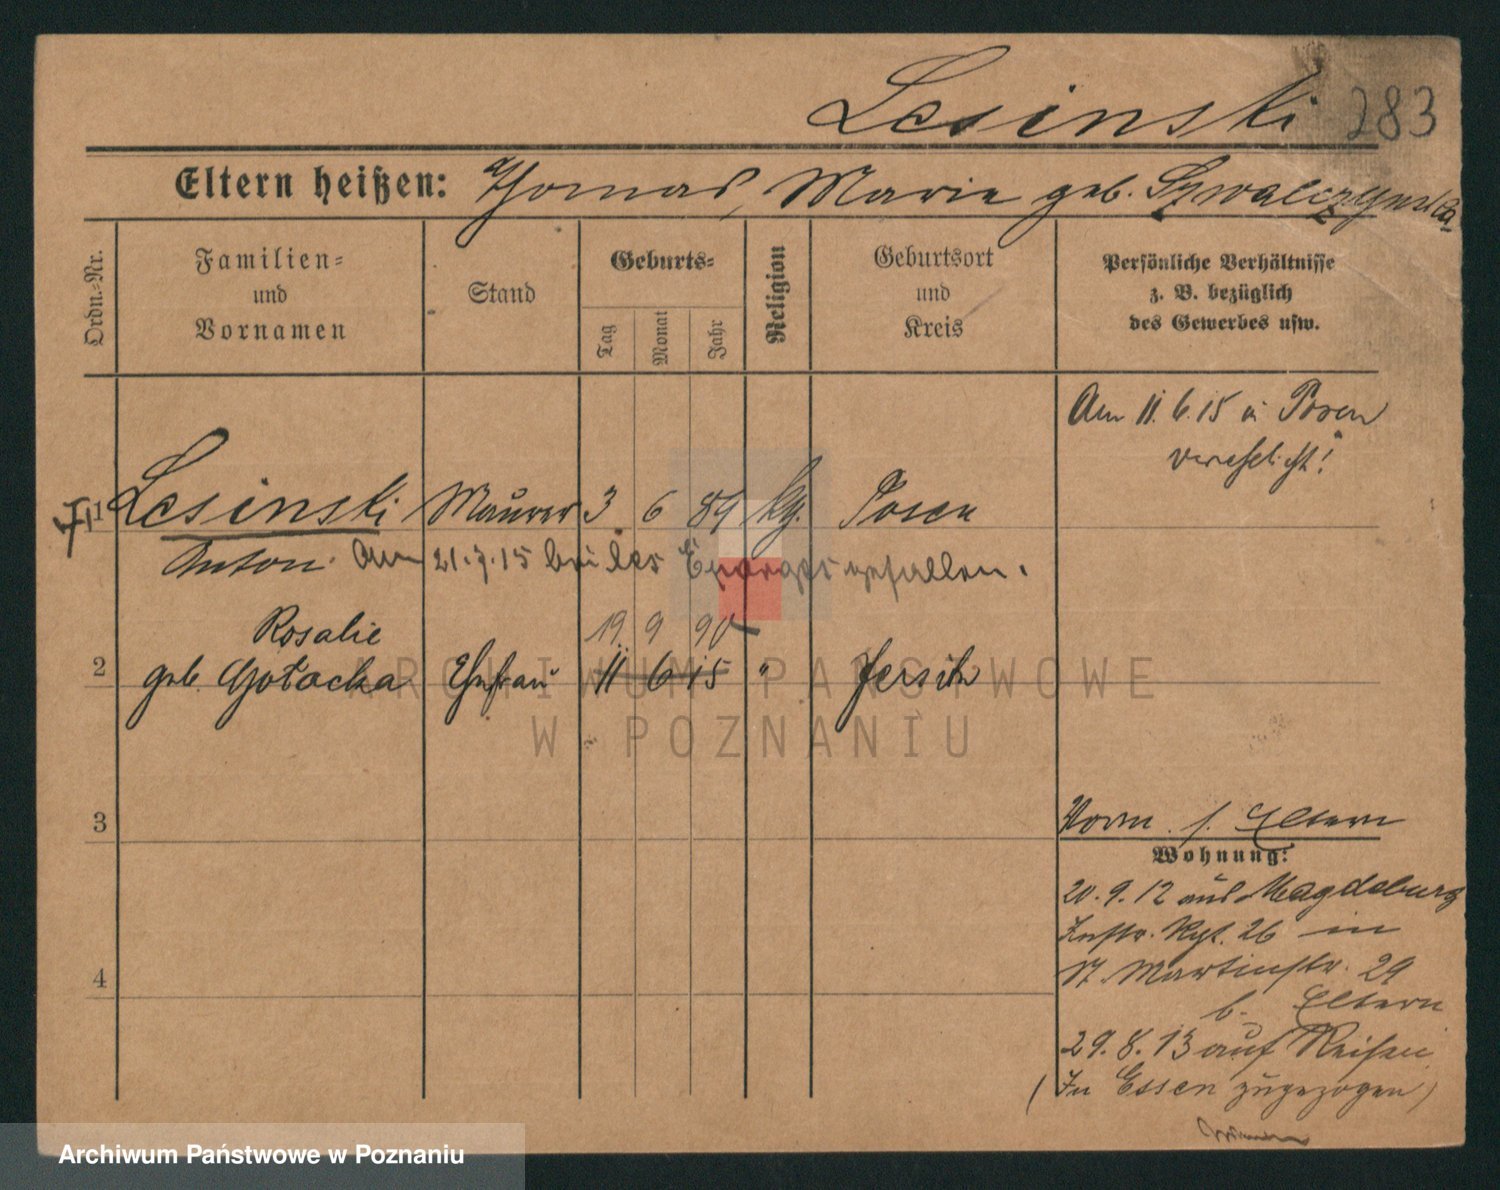 Lesinski 283
Eltern heißen: Thomas, Marie geb. Szwalczynska
Ordn.=Nr.
Familien=
und
Vornamen
Stand
Geburts=
Tag
Monat
Jahr
Religion
Geburtsort
und
Kreis
Persönliche Verhältnisse
z. B. bezüglich
des Gewerbes usw.
Am 11.6.15 in Posen
verehelicht!
1 Lesinski Maurer 3 6 89 kg. Posen
Anton. Am 21.7.15 bei gefallen.
Rosalie 19. 9 90
2 geb. Gotocka Ehefrau 11 6 15 " Jersitz
ARCHIWUM PAŃSTWOWE
W POZNANIU
3
Vorm. s. Eltern
Wohnung:
20.9.12 aus Magdeburg
Inftr. Rgt. 26 in
St. Martinstr. 29
b. Eltern
4
29.8.13 auf Reisen
(In Essen zugezogen)
Archiwum Państwowe w Poznaniu